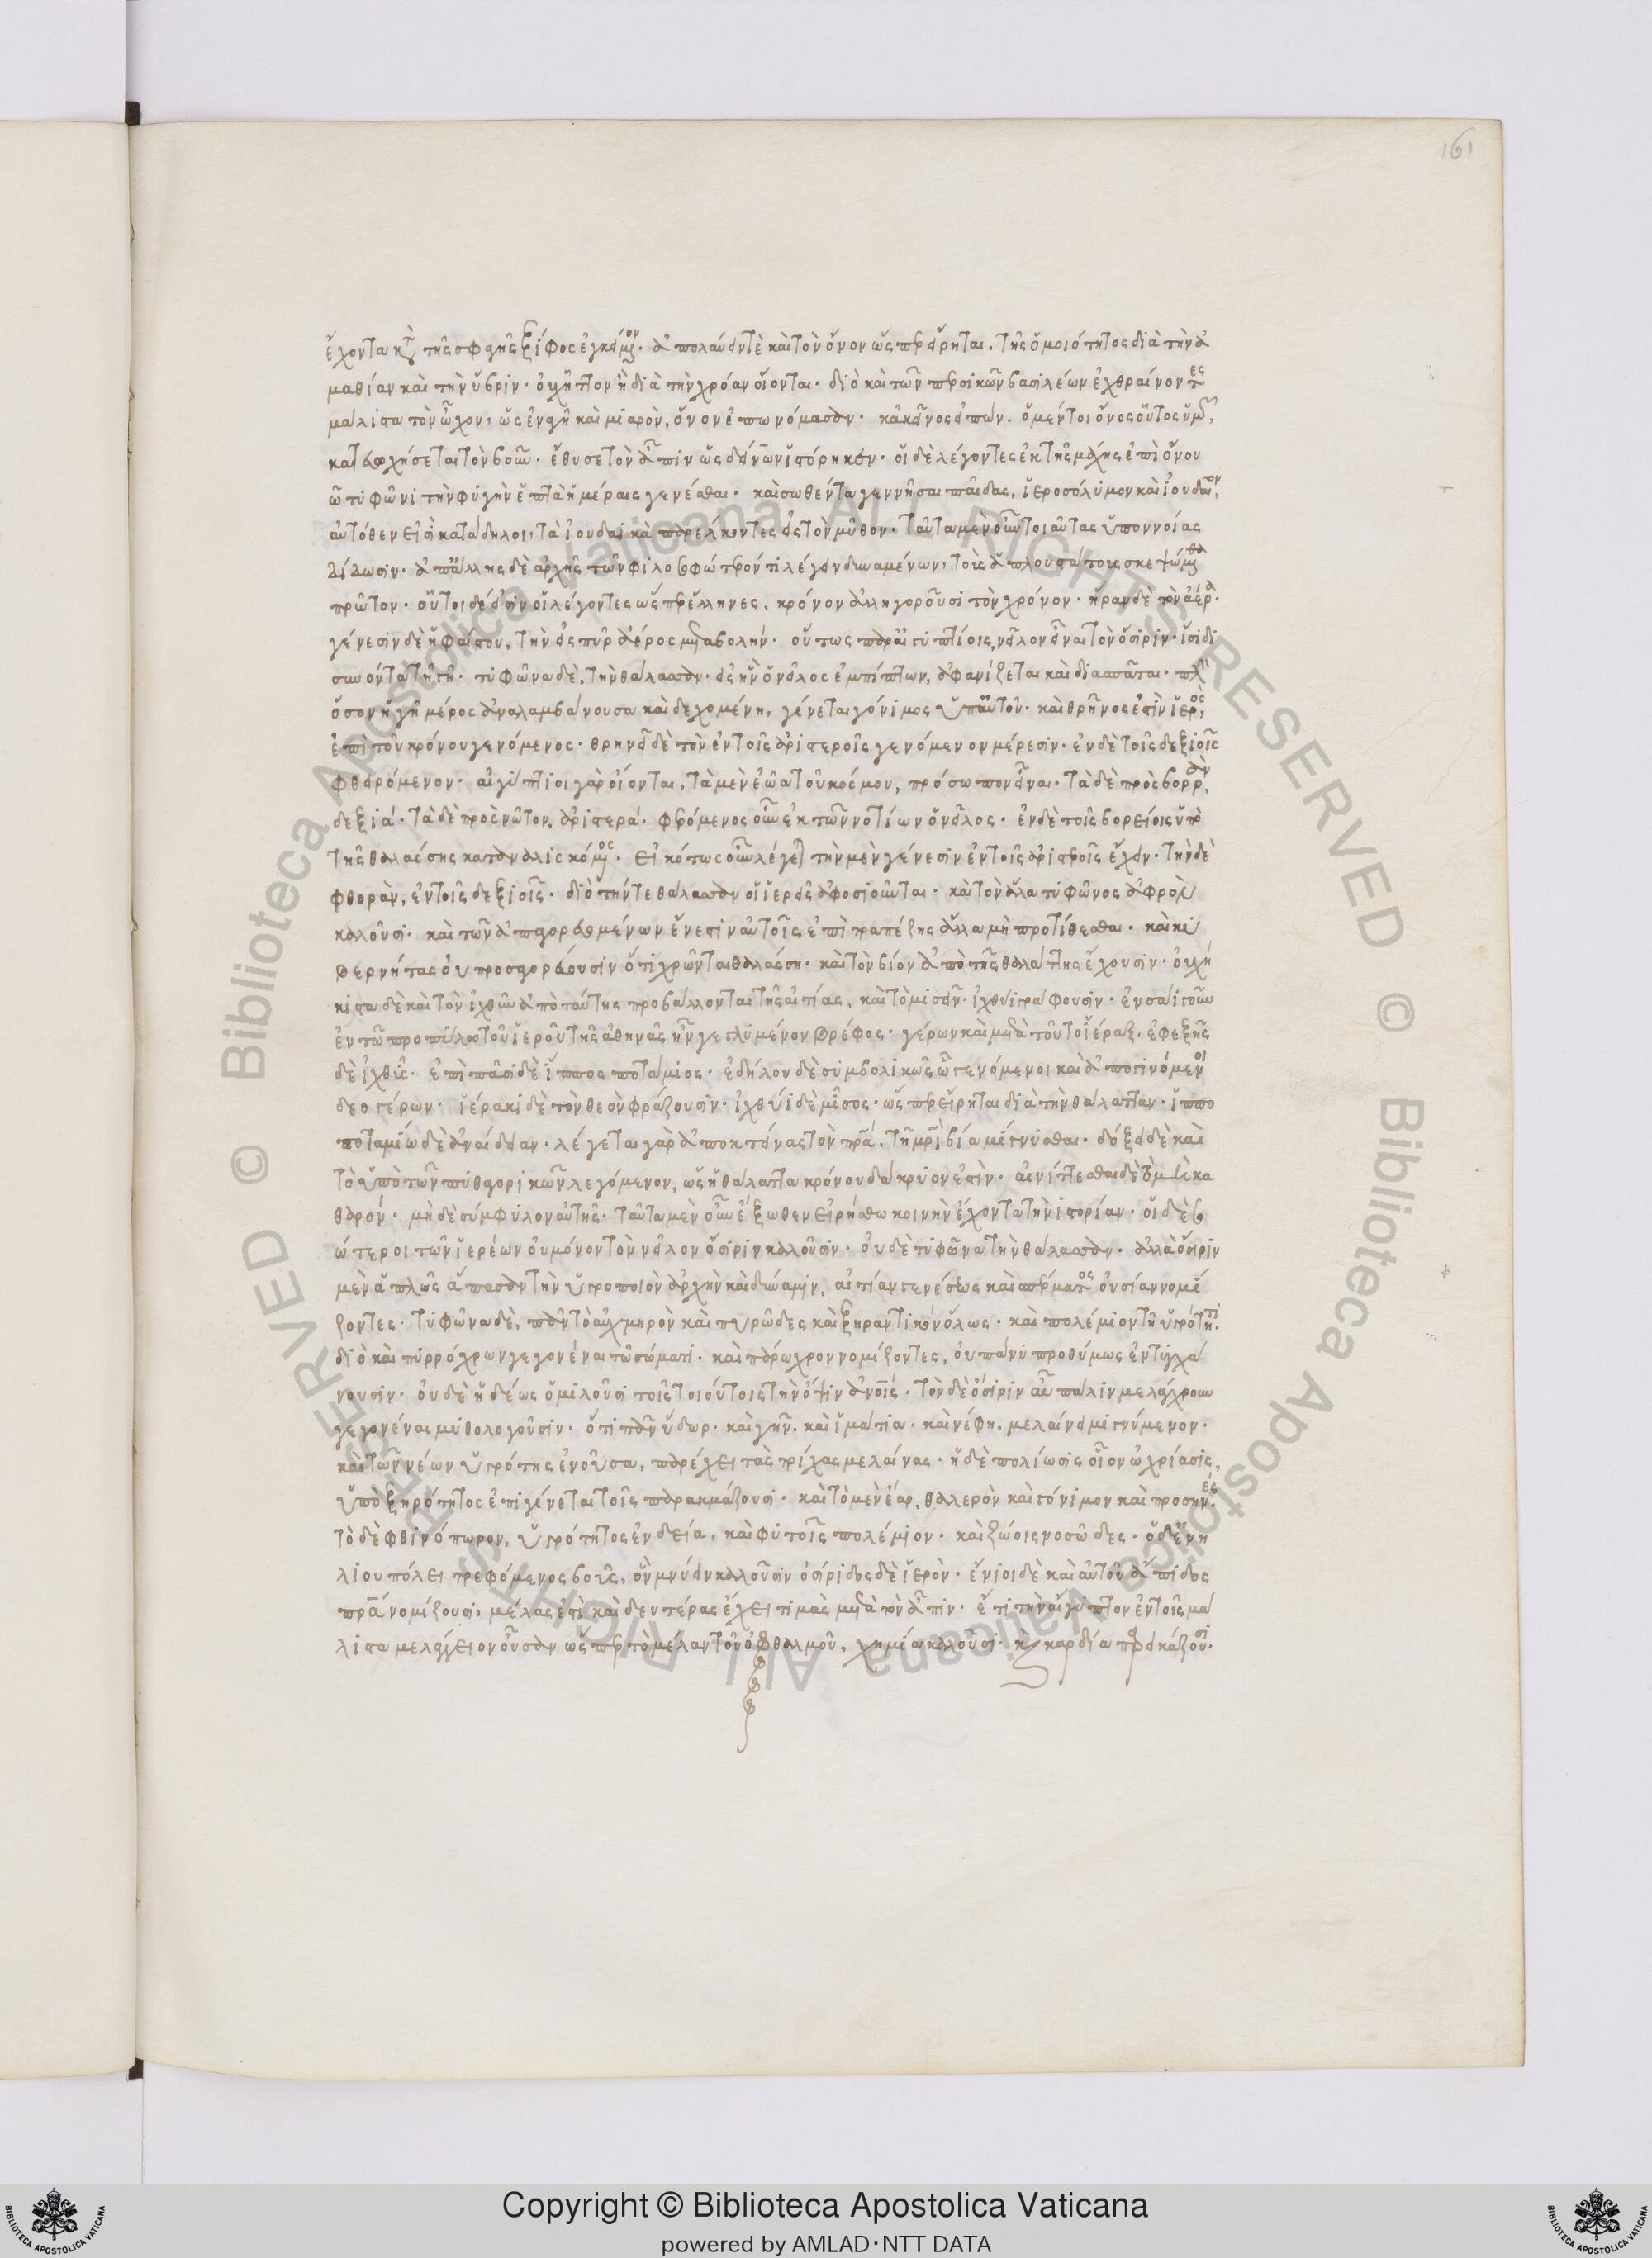 161
ἔχοντα κατὰ τῆς σφαγῆς ξίφος ἐγκείμενον. ἀπολαύειν τὲ καὶ τὸν ὄνον ὥσπερ εἴρηται, τῆς ὁμοιότητος διὰ τὴν ἀ
μαθίαν καὶ τὴν ὕβριν. οὐχ ἧττον ἢ διὰ τὴν χρόαν οἴονται. διὸ καὶ τῶν περσικῶν βασιλέων ἐχθραίνοντες
μάλιστα τὸν ὦχον, ὡς ἐναγῆ καὶ μιαρὸν, ὄνον ἐπωνόμασαν. κἀκεῖνος εἰπών. ὁ μέντοι ὄνος οὗτος ὑμῶν,
κατευωχήσεται τὸν βοῦν. ἔθυσε τὸν ἆπιν ὡς δείνων ἱστόρηκεν. οἱ δὲ λέγοντες ἐκ τῆς μάχης ἐπὶ ὄνου
τῷ τυφῶνι τὴν φυγὴν ἑπτὰ ἡμέραις γενέσθαι. καὶ σωθέντα γεννῆσαι παῖδας, ἱεροσόλυμον καὶ ἰουδαῖον,
αὐτόθεν εἰσὶ κατάδηλοι, τὰ ἰουδαϊκὰ παρέλκοντες εἰς τὸν μῦθον. ταῦτα μὲν οὖν τοιαύτας ὑπονοίας
δίδωσιν. ἀπ' ἄλλης δὲ ἀρχῆς τῶν φιλοσοφώτερόν τι λέγειν δυναμένων, τοὺς ἁπλουστάτους σκεψώμεθα
πρῶτον. οὗτοι δέ εἰσιν οἱ λέγοντες ὥσπερ ἕλληνες, κρόνον ἀλληγοροῦσι τὸν χρόνον. ἥραν δὲ τὸν ἀέρα.
γένεσιν δὲ ἡφαίστου, τὴν εἰς πῦρ ἀέρος μεταβολήν. οὕτως παρ' αἰγυπτίοις, νεῖλον εἶναι τὸν ὄσιριν. ἴσιδι
συνόντα τῇ γῇ. τυφῶνα δὲ, τὴν θάλασσαν. εἰς ἣν ὁ νεῖλος ἐμπίπτων, ἀφανίζεται καὶ διασπᾶται. πλὴν
ὅσον ἡ γῆ μέρος ἀναλαμβάνουσα καὶ δεχομένη, γίνεται γόνιμος ὑπ' αὐτοῦ. καὶ θρῆνος ἐστὶν ἱερὸς,
ἐπὶ τοῦ κρόνου γενόμενος. θρηνεῖ δὲ τὸν ἐν τοῖς ἀριστεροῖς γενόμενον μέρεσιν. ἐν δὲ τοῖς δεξιοῖς
φθειρόμενον. αἰγύπτιοι γὰρ οἴονται, τὰ μὲν ἑῷα τοῦ κόσμου, πρόσωπον εἶναι. τὰ δὲ πρὸς βορρᾶν,
δεξιά. τὰ δὲ πρὸς νῶτον, ἀριστερά. φερόμενος οὖν ἐκ τῶν νοτίων ὁ νεῖλος. ἐν δὲ τοῖς βορείοις ὑπὸ
τῆς θαλάσσης καταναλισκόμενος. εἰκότως οὖν λέγεται τὴν μὲν γένεσιν ἐν τοῖς ἀριστεροῖς ἔχειν. τὴν δὲ
φθορὰν, ἐν τοῖς δεξιοῖς. διὸ τήν τε θάλασσαν οἱ ἱερεῖς ἀφοσιοῦνται. καὶ τὸν ἅλα τυφῶνος ἀφρὸν
καλοῦσι. καὶ τῶν ἀπαγορευομένων ἕν ἐστιν αὐτοῖς ἐπὶ τραπέζης ἅλα μὴ προτίθεσθαι. καὶ κυ
βερνήτας οὐ προσαγορεύουσιν ὅτι χρῶνται θαλάσσῃ. καὶ τὸν βίον ἀπὸ τῆς θαλάττης ἔχουσιν. οὐχ ἥ
κιστα δὲ καὶ τὸν ἰχθῦν ἀπὸ ταύτης προβάλλονται τῆς αἰτίας, καὶ τὸ μισεῖν. ἰχθύϊ γράφουσιν. ἐν σάϊ γοῦν
ἐν τῷ προπύλῳ τοῦ ἱεροῦ τῆς ἀθηνᾶς ἦν γεγλυμένον βρέφος. γέρων καὶ μετὰ τοῦτο ἱέραξ. ἐφεξῆς
δὲ ἰχθῦς. ἐπὶ πᾶσι δὲ ἵππος ποτάμιος. ἐδήλου δὲ συμβολικῶς ὦ γενόμενοι καὶ ἀπογινόμενοι
δεο γέρων. ἱέρακι δὲ τὸν θεὸν φράζουσιν. ἰχθύϊ δὲ μῖσος. ὥσπερ εἴρηται διὰ τὴν θάλατταν. ἵππῳ
ποταμίῳ δὲ ἀναίδειαν. λέγεται γὰρ ἀποκτείνας τὸν πατέρα, τῇ μητρὶ βίᾳ μίγνυσθαι. δόξει δὲ καὶ
τὸ ὑπὸ τῶν πυθαγορικῶν λεγόμενον, ὡς ἡ θάλαττα κρόνου δάκρυόν ἐστιν. αἰνίττεσθαι δὲ τὸ μὴ κα
θαρόν. μὴ δὲ σύμφυλον αὐτῆς. ταῦτα μὲν οὖν ἔξωθεν εἰρήσθω κοινὴν ἔχοντα τὴν ἱστορίαν. οἱ δὲ σοφ
ώτεροι τῶν ἱερέων οὐ μόνον τὸν νεῖλον ὄσιριν καλοῦσιν. οὐδὲ τυφῶνα τὴν θάλασσαν. ἀλλὰ ὄσιριν
μὲν ἁπλῶς ἅπασαν τὴν ὑγροποιὸν ἀρχὴν καὶ δύναμιν, αἰτίαν γενέσεως καὶ σπέρματος οὐσίαν νομί
ζοντες. τυφῶνα δὲ, πᾶν τὸ αὐχμηρὸν καὶ πυρῶδες καὶ ξηραντικὸν ὅλως. καὶ πολέμιον τῇ ὑγρότητι.
διὸ καὶ πυρρόχρων γεγονέναι τῷ σώματι. καὶ πάρωχρον νομίζοντες, οὐ πάνυ προθύμως ἐντυγχά
νουσιν. οὐδὲ ἡδέως ὁμιλοῦσι τοῖς τοιούτοις τὴν ὄψιν ἀνθρώποις. τὸν δὲ ὄσιριν αὖ πάλιν μελάγχρουν
γεγονέναι μυθολογοῦσιν. ὅτι πᾶν ὕδωρ. καὶ γῆν. καὶ ἱμάτια. καὶ νέφη. μελαίνει μιγνύμενον.
καὶ τῶν νέων ὑγρότης ἐνοῦσα, παρέχει τὰς τρίχας μελαίνας. ἡ δὲ πολίωσις οἷον ὠχρίασις,
ὑπὸ ξηρότητος ἐπιγίνεται τοῖς παρακμάζουσι. καὶ τὸ μὲν ἔαρ, θαλερὸν καὶ γόνιμον καὶ προσηνές.
τὸ δὲ φθινόπωρον, ὑγρότητος ἐνδείᾳ, καὶ φυτοῖς πολέμιον. καὶ ζώοις νοσῶδες. ὁ δὲ ἐν ἡ
λίου πόλει τρεφόμενος βοῦς, ὃν μνύειν καλοῦσιν ὀσίριδος δὲ ἱερὸν. ἔνιοι δὲ καὶ αὐτοῦ ἄπιδος
πατέρα νομίζουσι, μέλας ἐστὶ καὶ δευτέρας ἔχει τιμὰς μετὰ τὸν ἆπιν. ἔτι τὴν αἴγυπτον ἐν τοῖς μά
λιστα μελάγγειον οὖσαν ὥσπερ τὸ μέλαν τοῦ ὀφθαλμοῦ, χημία καλοῦσι. καὶ καρδία παρεικάζουσι.